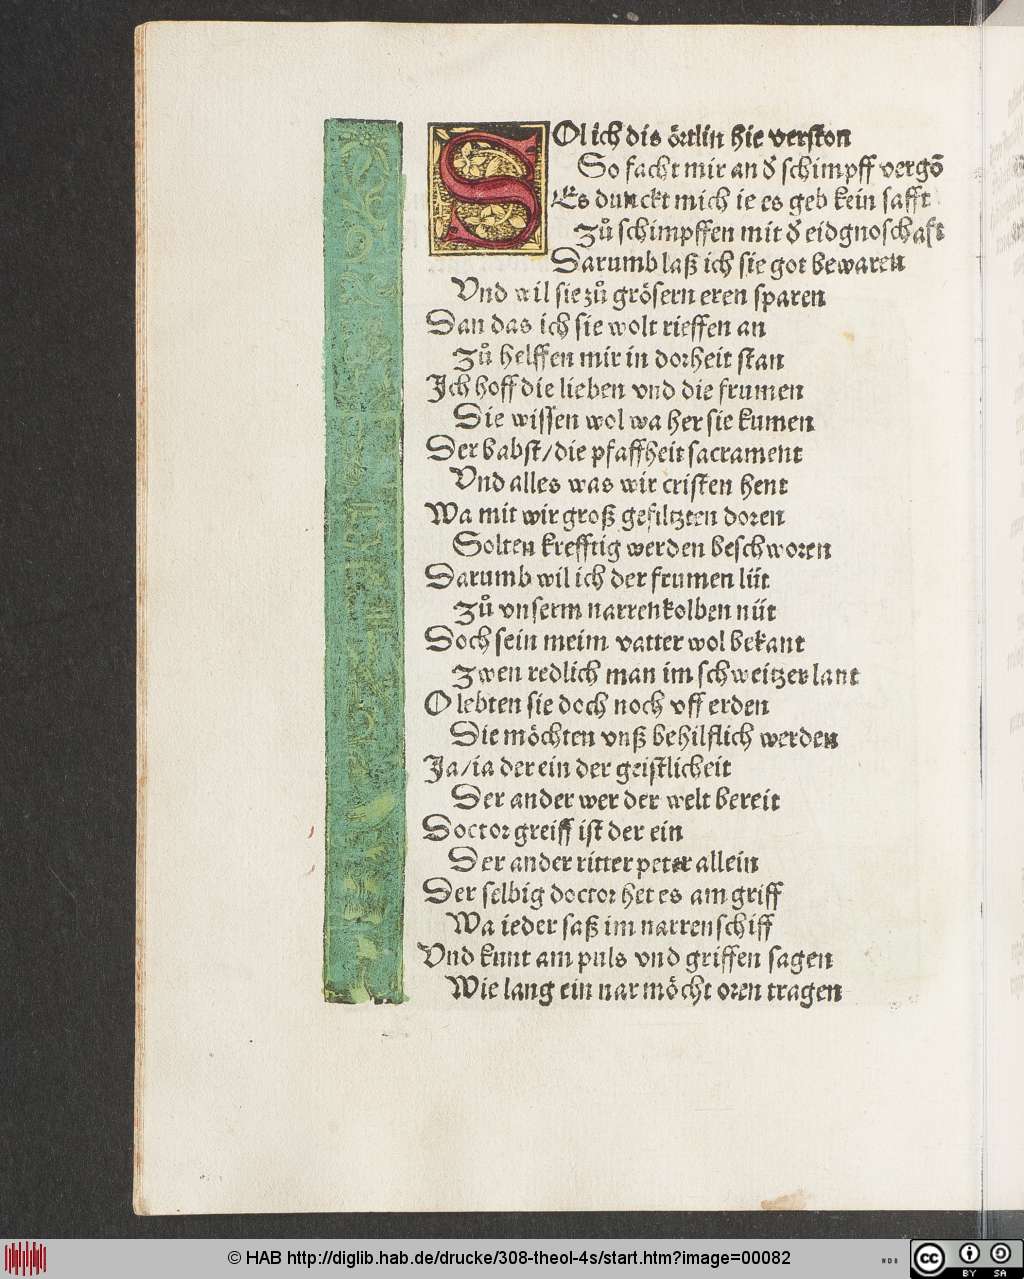 SOl ich dis oͤrtlin hie verston
So facht mir an dˀ schimpff vergō
Es dunckt mich ie es geb kein safft
Zuͦ schimpffen mit dˀ eidgnoschaft
Darumb laß ich sie got bewaren
Vnd wil sie zuͦ groͤsern eren sparen
Dan das ich sie wolt rieffen an
Zuͦ helffen mir in dorheit stan
Ich hoff die lieben vnd die frumen
Die wissen wol wa her sie kumen
Der babst/die pfaffheit sacrament
Vnd alles was wir cristen hent
Wa mit wir groß gefiltzten doren
Solten krefftig werden beschworen
Darumb wil ich der frumen lüt
Zuͦ vnserm narrenkolben nüt
Doch sein meim vatter wol bekant
Zwen redlich man im schweitzer lant
O lebten sie doch noch vff erden
Die moͤchten vnß behilflich werden
Ja/ia der ein der geistlicheit
Der ander wer der welt bereit
Doctor greiff ist der ein
Der ander ritter peter allein
Der selbig doctor het es am griff
Wa ieder saß im narrenschiff
Vnd kunt am puls vnd griffen sagen
Wie lang ein nar moͤcht oren tragen
© HAB http://diglib.hab.de/drucke/308-theol-4s/start.htm?image=00082
WDB
cc BY SA